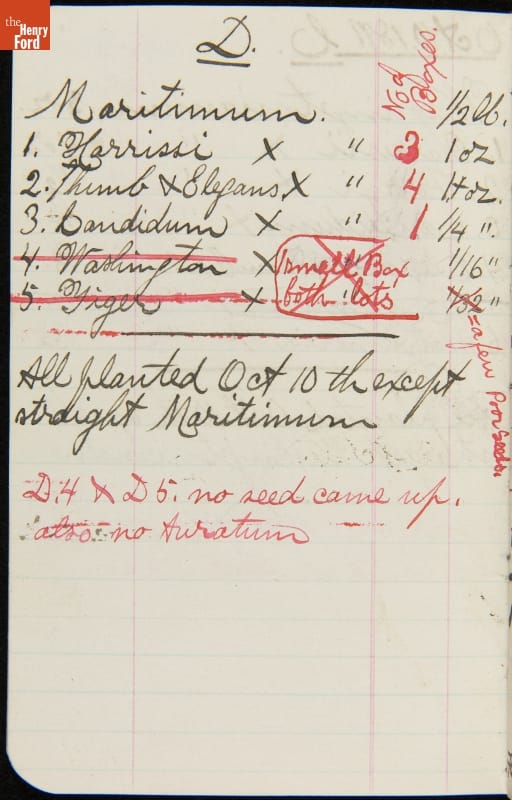 the
Henry
Ford
D.
No of Boxes.
Maritimum. 1/2 lb.
1. Harrissi X " 3 1 oz
2. Thumb & Elegans X " 4 1+ oz.
3. Candidum X " 1 1/4 ".
4. Washington X 1 small Box " 1/16 "
5. Tiger X both " lots 1/32 "
= a few Poor Seeds
All planted Oct 10th except
straight Maritimum
D.4 & D5. no seed came up.
also no Auratum